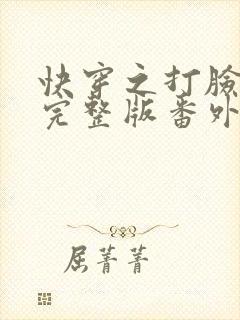 快穿之打脸
完整版番外
屈菁菁